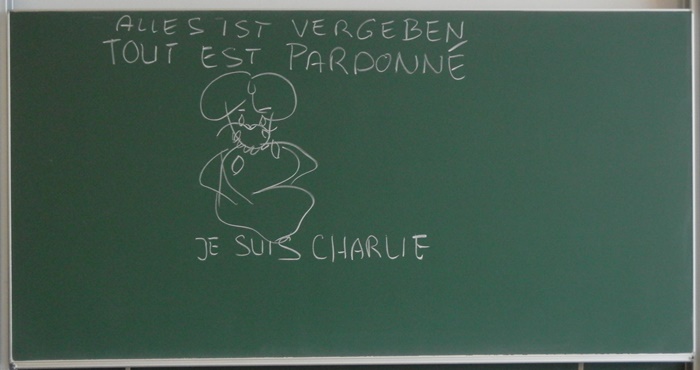 ALLES IST VERGEBEN
TOUT EST PARDONNÉ
JE SUIS CHARLIE